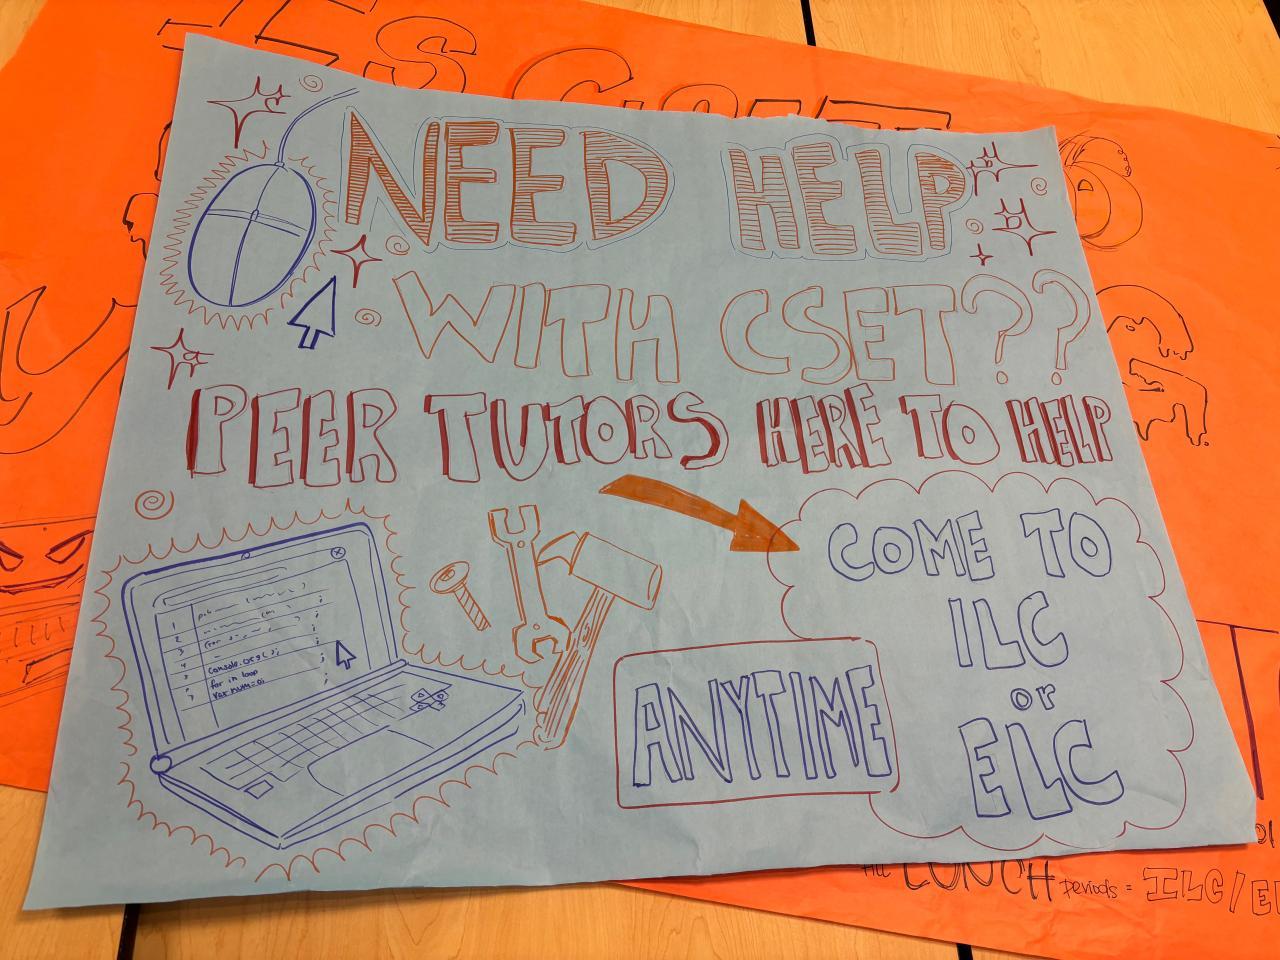 NEED HELP
WITH CSET??
PEER TUTORS HERE TO HELP
COME TO
ILC
or
ELC
ANYTIME
1
2
3
4
console.log();
for in loop
var num=0;
LUNCH periods = ILC/E